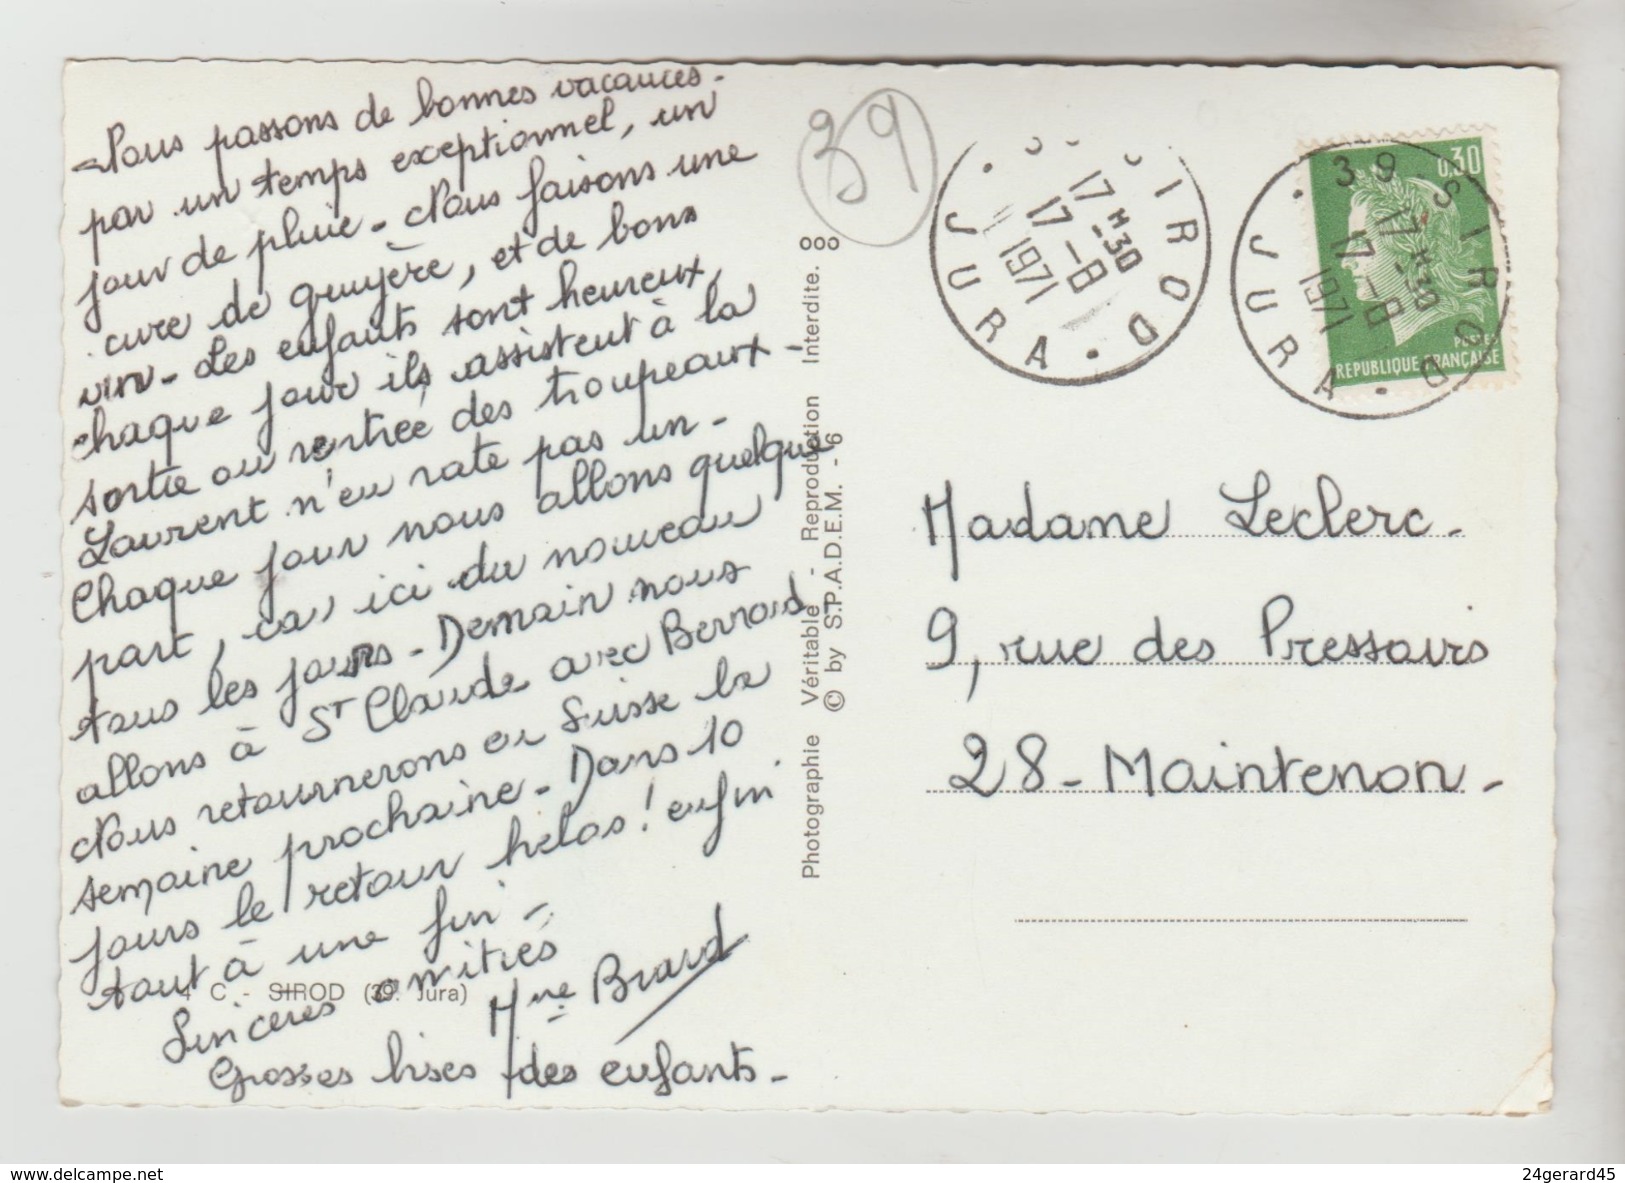 Nous passons de bonnes vacances -
par un temps exceptionnel, un
jour de pluie - Nous faisons une
cure de gruyère, et de bons
vin - Les enfants sont heureux,
chaque jour ils assistent à la
sortie ou rentrée des troupeaux -
Laurent n'en rate pas un -
Chaque jour nous allons quelque
part, ici du nouveau
tous les jours - Demain nous
allons à St Claude avec Bernard
Nous retournerons en Suisse la
semaine prochaine - Dans 10
jours le retour helas ! enfin
tout à une fin -
4 C - SIROD (39. Jura)
Sincères amitiés
Mme Brard
Grosses bises des enfants -
39
Photographie Véritable - Reproduction Interdite. 000
© by S.P.A.D.E.M. - 6
SIROD
17 H 30
17 - 8
1971
JURA
39 SIROD
17 H 30
17 - 8
1971
JURA
0,30
POSTES
REPUBLIQUE FRANÇAISE
Madame Leclerc -
9, rue des Pressoirs
28 - Maintenon -
www.delcampe.net
24gerard45